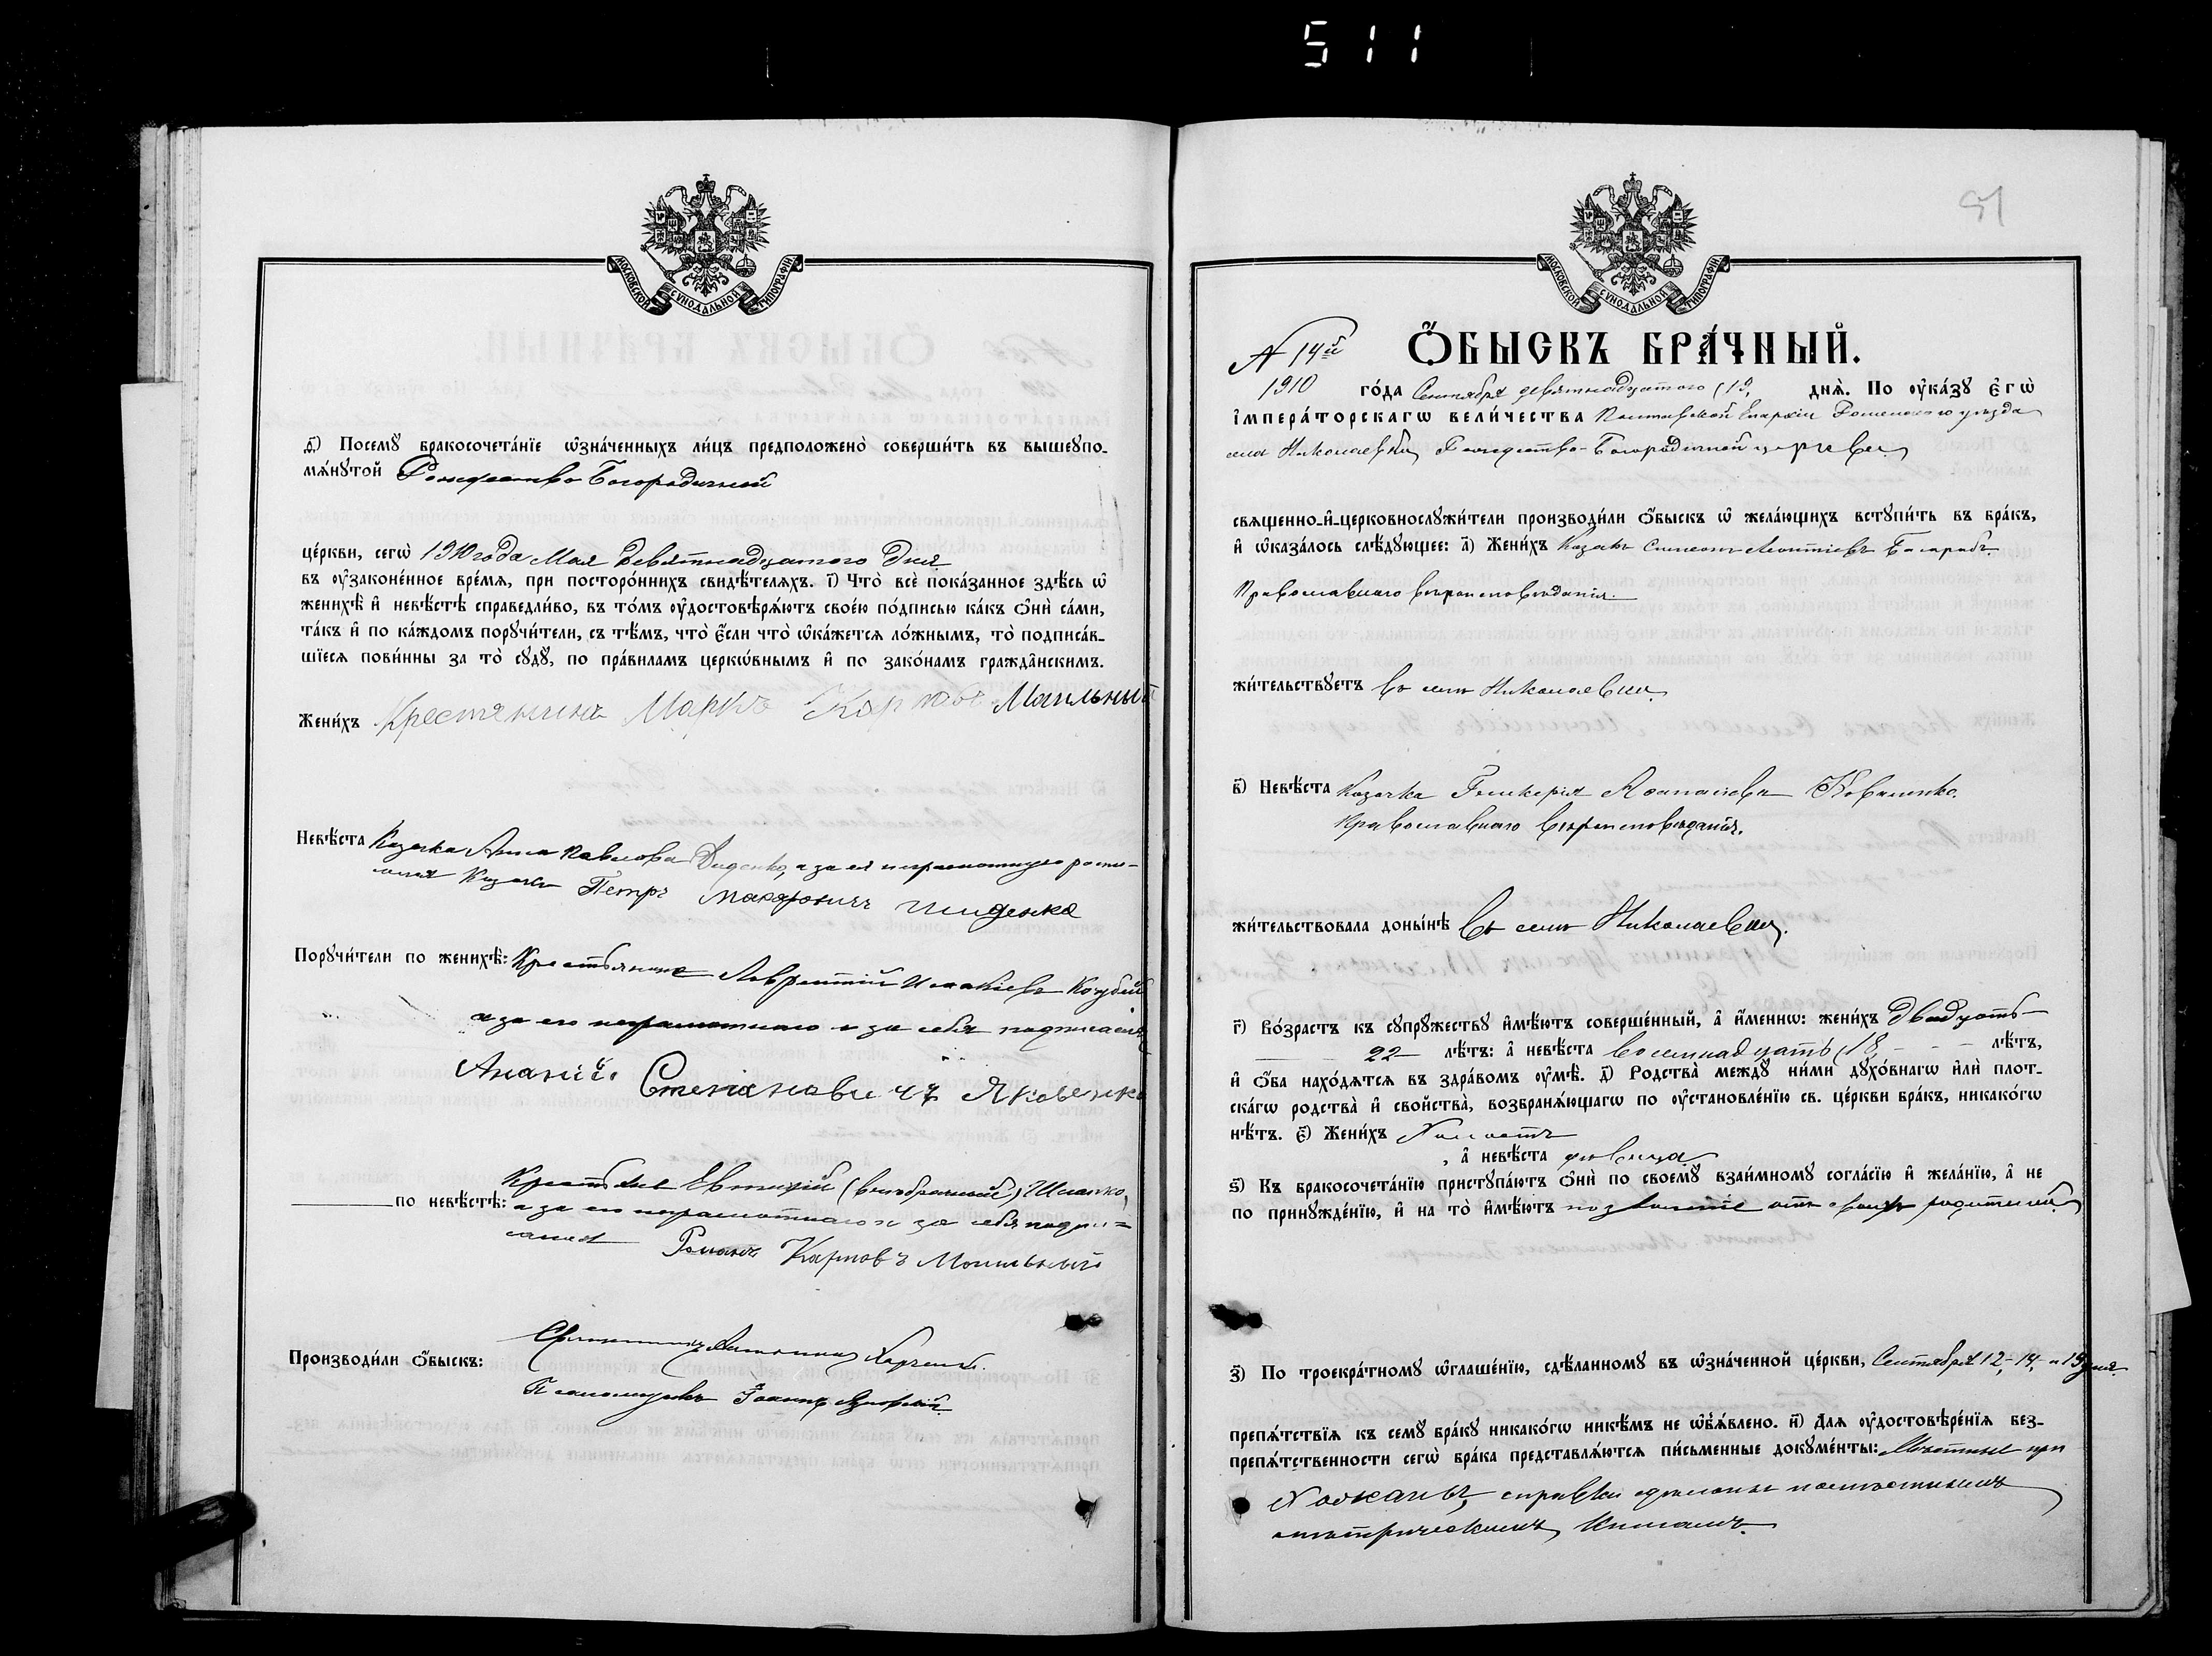 511
МОСКОВСКОЙ СѴНОДАЛЬНОЙ ТИПОГРАФІИ
ѳ҃) Посемꙋ бракосочета́нїе ѡ҆зна́ченныхъ ли́цъ предположено̀ соверши́ть въ вышеꙋпо-
мѧ́нꙋтой Рождество Богородичной
це́ркви, сегѡ̀ 1910 года Мая девятнадцатого дня
въ ᲂу҆законе́нное вре́мѧ, при посторо́ннихъ свидѣ́телѧхъ. і҃) Что̀ всѐ пока́занное здѣ́сь ѡ҆
женихѣ̀ и҆ невѣ́стѣ справедли́во, въ то́мъ ᲂу҆достовѣрѧ́ютъ свое́ю по́дписью ка́къ ѻ҆нѝ са́ми,
та́къ и҆ по ка́ждомъ порꙋчи́тели, съ тѣ́мъ, что̀ є҆́сли что̀ ѡ҆ка́жетсѧ ло́жнымъ, то̀ подписа́в-
шїесѧ пови́нны за то̀ сꙋдꙋ̀, по пра́виламъ церко́внымъ и҆ по зако́намъ гражда̑нскимъ.
Жени́хъ Крестянинъ Маркъ Карповъ Могильный
Невѣ́ста Казачка Анна Павлова Диденко, а за ея неграмотную роспи-
сался Казакъ Петръ Макаровичъ
Порꙋчи́тели по женихѣ̀: Крестьянинъ Лаврентій Исакіевъ Коцубей
а за его неграмотнаго и за себя подписался
Ананій Степановичъ Яковенко
по невѣ́стѣ: Крестьянинъ Евтихій (внебрачный)
а за его неграмотнаго и за себя подпи-
сался Романъ Карповъ Могильный
Производи́ли ѻ҆́быскъ: Священникъ
Псаломщикъ Іоаннъ
51
МОСКОВСКОЙ СѴНОДАЛЬНОЙ ТИПОГРАФІИ
N 14й ѺБЫСКЪ БРА́ЧНЫЙ.
1910 го́да Сентября девятнадцатого (19, днѧ̀. По ᲂу҆ка́зꙋ є҆гѡ̀
і҆мпера́торскагѡ вели́чества Полтавской Епархіи Роменскаго уезда
села Николаевки Рождество-Богородичной церкви
свѧщенно-и҆-церковнослꙋжи́тели производи́ли ѻ҆́быскъ ѡ҆ жела́ющихъ встꙋпи́ть въ бра́къ,
и҆ ѡ҆каза́лось слѣ́дꙋющее: а҃) Жени́хъ Казакъ Симеонъ Леонтіевъ
Православнаго вероисповеданія.
жи́тельствꙋетъ въ селе Николаевки
в҃) Невѣ́ста Казачка Гликерія Коваленко.
Православнаго вероисповеданія.
жи́тельствовала доны́нѣ въ селе Николаевки.
г҃) Во́зрастъ къ сꙋпрꙋжествꙋ и҆мѣ́ютъ соверше́нный, а҆ и҆́меннѡ: жени́хъ двадцать-
22 лѣ́тъ: а҆ невѣ́ста восемнадцать (18, лѣ́тъ,
и҆ ѻ҆́ба нахо́дѧтсѧ въ здра́вомъ ᲂу҆мѣ̀. д҃) Родства̀ междꙋ̀ ни́ми дꙋхо́внагѡ и҆лѝ плот-
ска́гѡ родства̀ и҆ свойства̀, возбранѧ́ющагѡ по ᲂу҆становле́нїю св. це́ркви бра́къ, никако́гѡ
нѣ́тъ. є҃) Жени́хъ Холостъ
, а҆ невѣ́ста девица
ѕ҃) Къ бракосочета́нїю пристꙋпа́ютъ ѻ҆нѝ по своемꙋ̀ взаи́мномꙋ согла́сїю и҆ жела́нїю, а҆ не
по принꙋжде́нїю, и҆ на то̀ и҆мѣ́ютъ позволеніе отъ своихъ родителей
з҃) По троекра́тномꙋ ѡ҆глаше́нїю, сдѣ́ланномꙋ въ ѡ҆зна́ченной це́ркви, Сентября 12, 14, и 19 дня.
препѧ́тствїѧ къ семꙋ̀ бра́кꙋ никако́гѡ никѣ́мъ не ѡ҆б̾ѧ́влено. и҃) Длѧ ᲂу҆достовѣре́нїѧ без-
препѧ́тственности сегѡ̀ бра́ка представлѧ́ютсѧ пи́сьменные докꙋме́нты: Местные при
хожаны, справки сделаны
метрическимъ книгамъ.